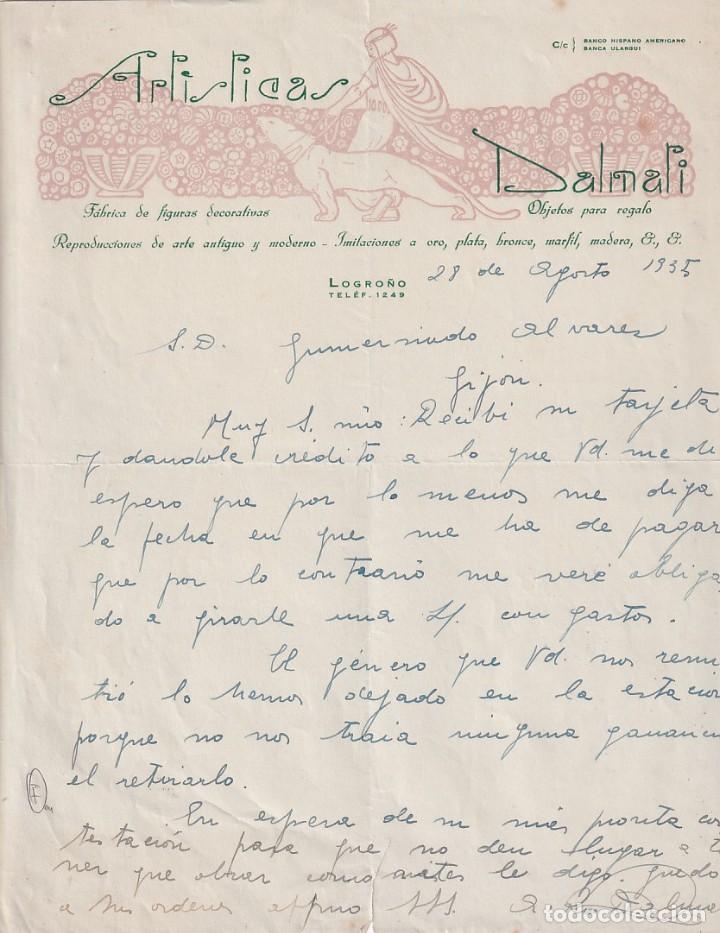 C/c } BANCO HISPANO AMERICANO
BANCA ULARGUI
Artisticas
Dalmati
Fábrica de figuras decorativas
Objetos para regalo
Reproducciones de arte antiguo y moderno - Imitaciones a oro, plata, bronce, marfil, madera, &, &.
LOGROÑO 28 de Agosto 1935
TELÉF. 1249
S.D. Gumersindo Alvares
Gijón.
Muy S. mio: Recibi su tarjeta
y dandole crédito a lo que Vd. me di
espero que por lo menos me diga
la fecha en que me ha de pagar
que por lo contrario me veré obliga
do a girarle una L/. con gastos.
El género que Vd. nos remi
tió lo hemos dejado en la estacion
porque no nos traia ninguna gananci
el retirarlo.
En espera de su más pronta con
testación para que no den llugar a te
ner que obrar como antes le digo. quedo
a sus ordenes affmo SSS.
todocoleccion.net